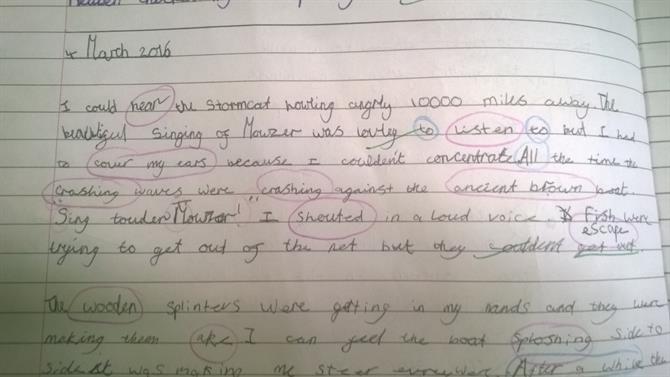 4 March 2016
I could hear the stormcat howling angrly 10000 miles away The
beautiful singing of Mowzer was lovley to listen to but I had
to cover my ears because I couldn't concentrate All the time the
crashing waves were crashing against the ancient brown boat.
"Sing louder Mowzer!" I shouted in a loud voice. Fish were
escape
trying to get out of the net but they couldent get out
The wooden splinters were getting in my hands and they were
making them ake I can feel the boat sploshing side to
side it was making me steer everywere After a while the